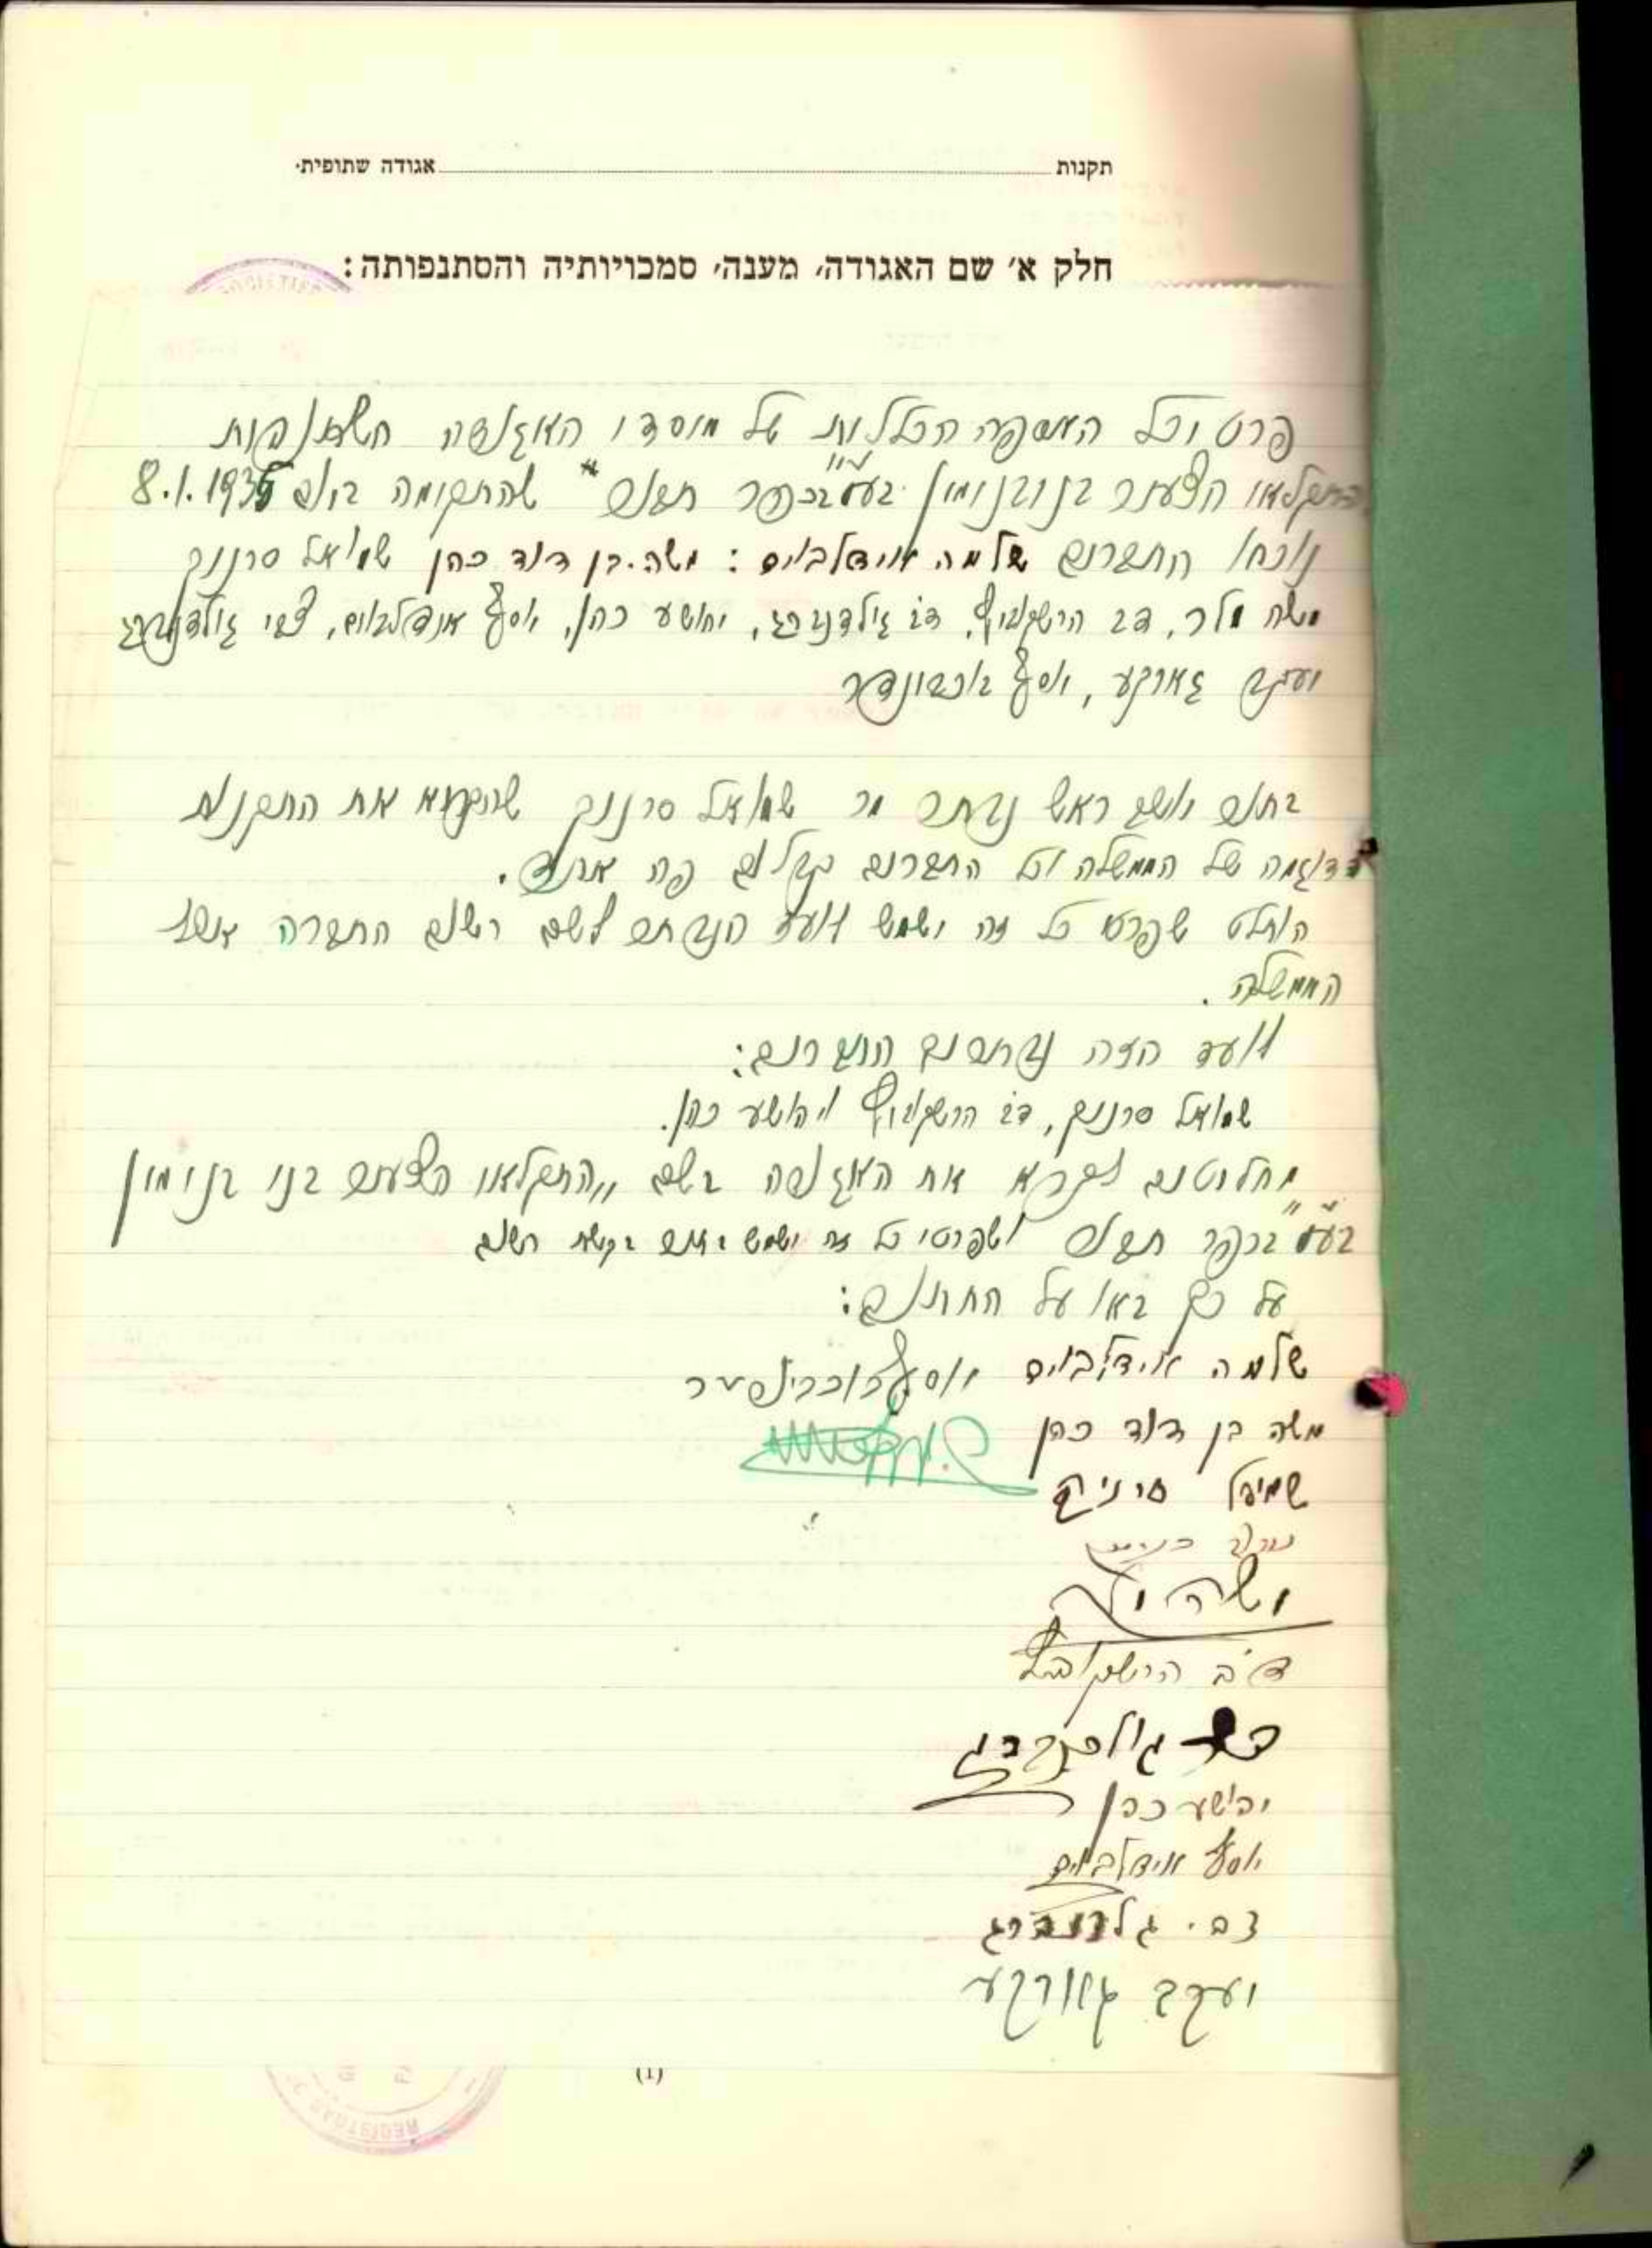 תקנות אגודה שתופית.
חלק א׳ שם האגודה, מענה, סמכויותיה והסתנפותה:
SOCIETIES
פרטיכל האספה הכללית של מיסדי האגודה השתופית
החקלאי הצעיר בני בנימין בע״מ בכפר שהתקימה ביום 8.1.1935
נוכחו החברים שלמה אידלבוים: משה בן דוד כהן שמואל סרניק
משה מלר, דב הרשקוביץ, דב גילדנברג, יהושע כהן, יוסף אידלבוים, צבי גילדנברג
יעקב גאורקע, יוסף
בתור יושב ראש נבחר מר שמואל סרניק שהקריא את התקנות
הדוגמה של הממשלה וכל החברים קבלום פה אחד.
הוחלט שפרטי כל זה ישמש לועד הנבחר לשם רשום החברה אצל
הממשלה.
לועד הזה נבחרים החברים:
שמואל סרניק, דב הרשקוביץ ויהושע כהן.
מחליטים לקרא את האגודה בשם „החקלאי הצעיר בני בנימין
בע״מ״ בכפר ושפרטי כל זה ישמש בתור בקשת רשום
על כך באו על החתום:
שלמה אידלבוים יוסף
משה בן דוד כהן
שמואל סרניק
משה
דב הרשקוביץ
דב גולדנברג
יהושע כהן
יוסף אידלבוים
צבי גלדנברג
יעקב גאורקע
(1)
REGISTRAR